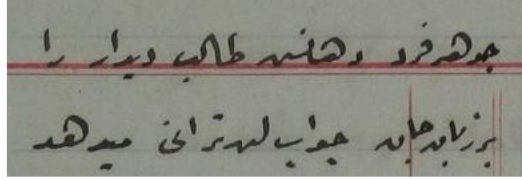 جوهر فرد دهانش طالب دیدار را
بر زبان جان جواب لن ترانی میدهد